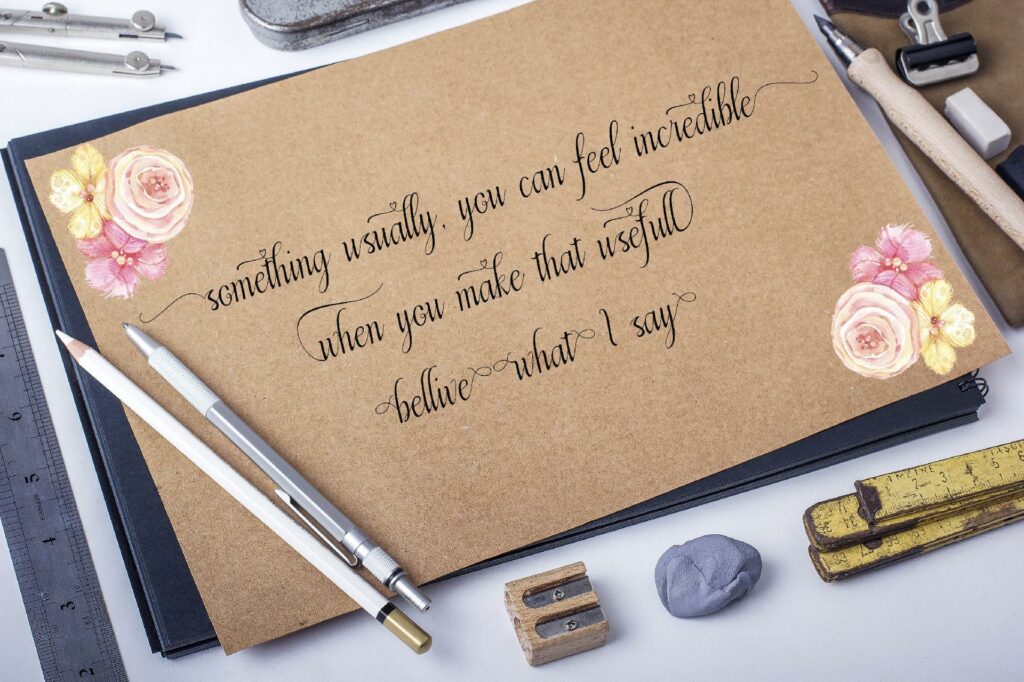 something usually, you can feel incredible
when you make that usefull
bellive what I say
6
5
4
3
2
2
3
4
5
6